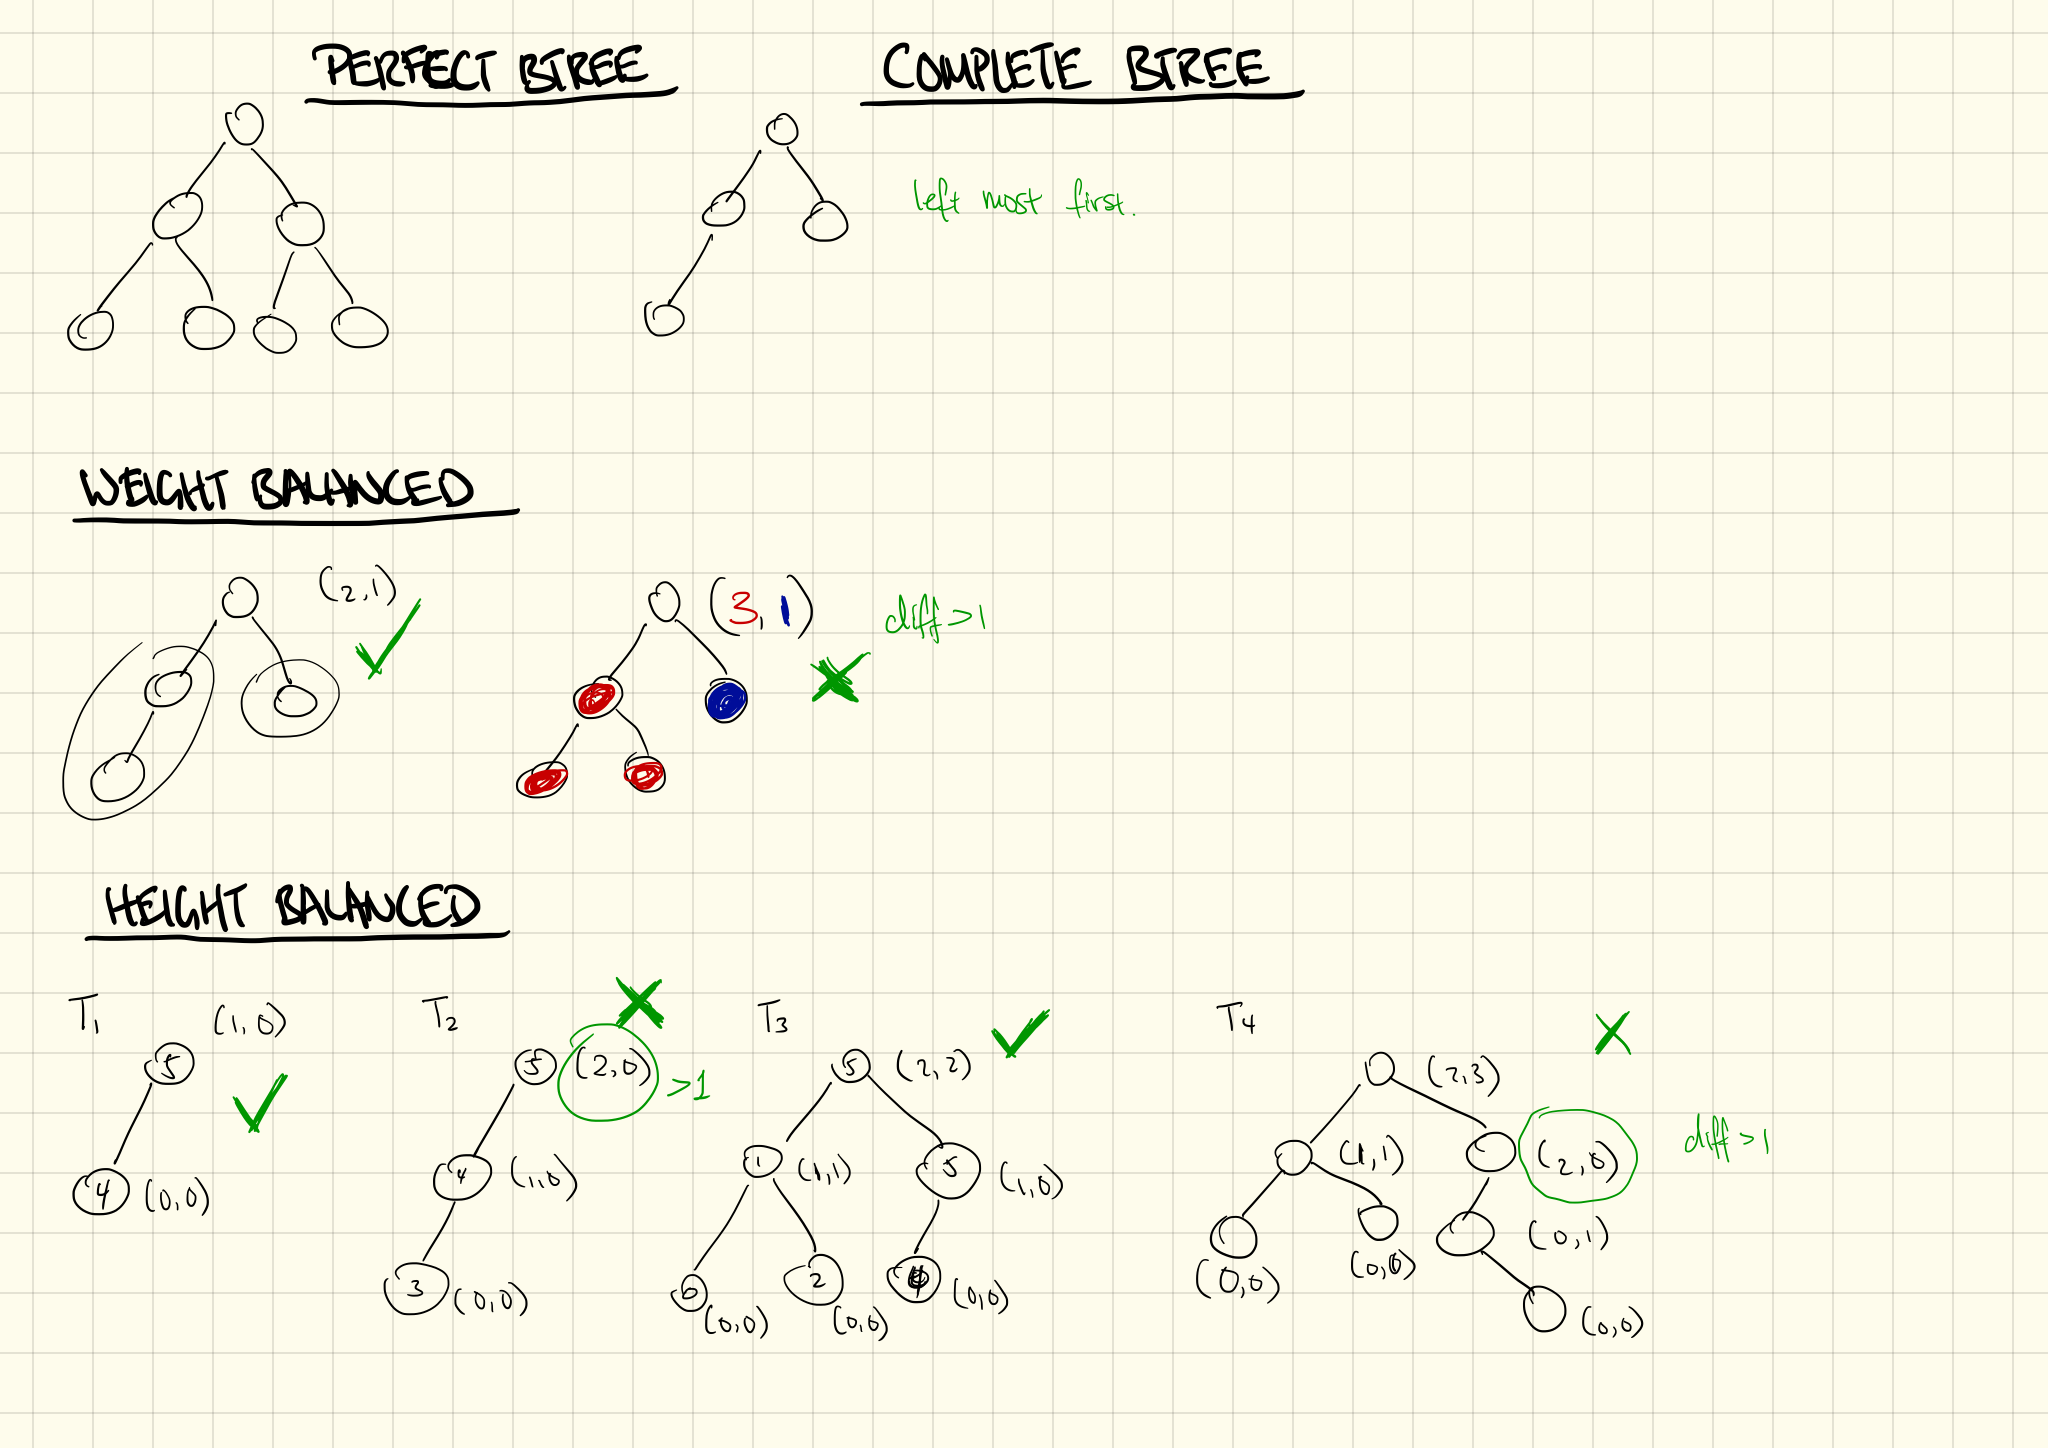 PERFECT BTREE
COMPLETE BTREE
left most first.
WEIGHT BALANCED
(2,1)
(3,1)
diff >1
HEIGHT BALANCED
T1
(1,0)
5
4
(0,0)
T2
5
(2,0)
>1
4
(1,0)
3
(0,0)
T3
5
(2,2)
1
(1,1)
5
(1,0)
6
(0,0)
2
(0,0)
4
(0,0)
T4
(2,3)
(1,1)
(2,0)
diff >1
(0,0)
(0,0)
(0,1)
(0,0)